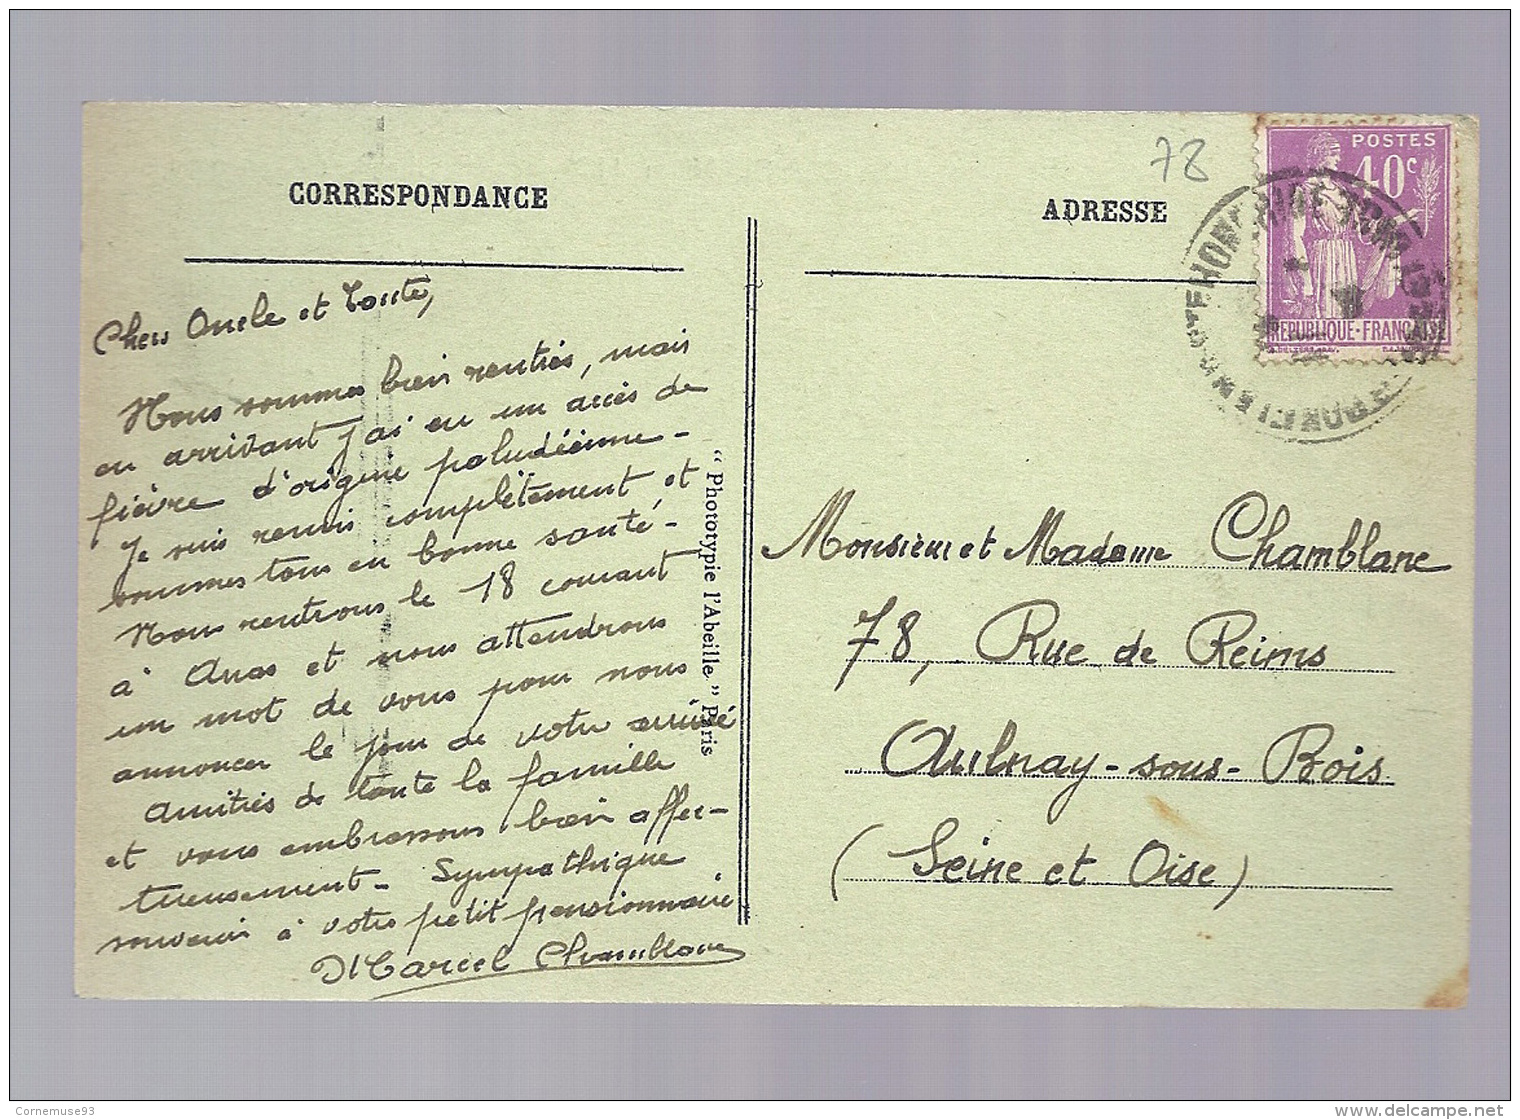 CORRESPONDANCE
Chers Oncle et Tante,
Nous sommes bien rentrés, mais
en arrivant j'ai eu un accès de
fièvre d'origine paludéenne -
Je suis remis complètement et
sommes tous en bonne santé -
Nous rentrons le 18 courant
à et nous attendrons
un mot de vous pour nous
annoncer le jour de votre arrivée
Amitiés de toute la famille
et vous embrassons bien affec-
tueusement - Sympathique
souvenir à votre petit pensionnaire
Marcel Chamblanc
" Photolypie l'Abeille " Paris
78
ADRESSE
POSTES
40c
REPUBLIQUE·FRANÇAISE
Monsieur et Madame Chamblanc
78, Rue de Reims
Aulnay-sous-Bois
(Seine et Oise)
Cornemuse93
www.delcampe.net